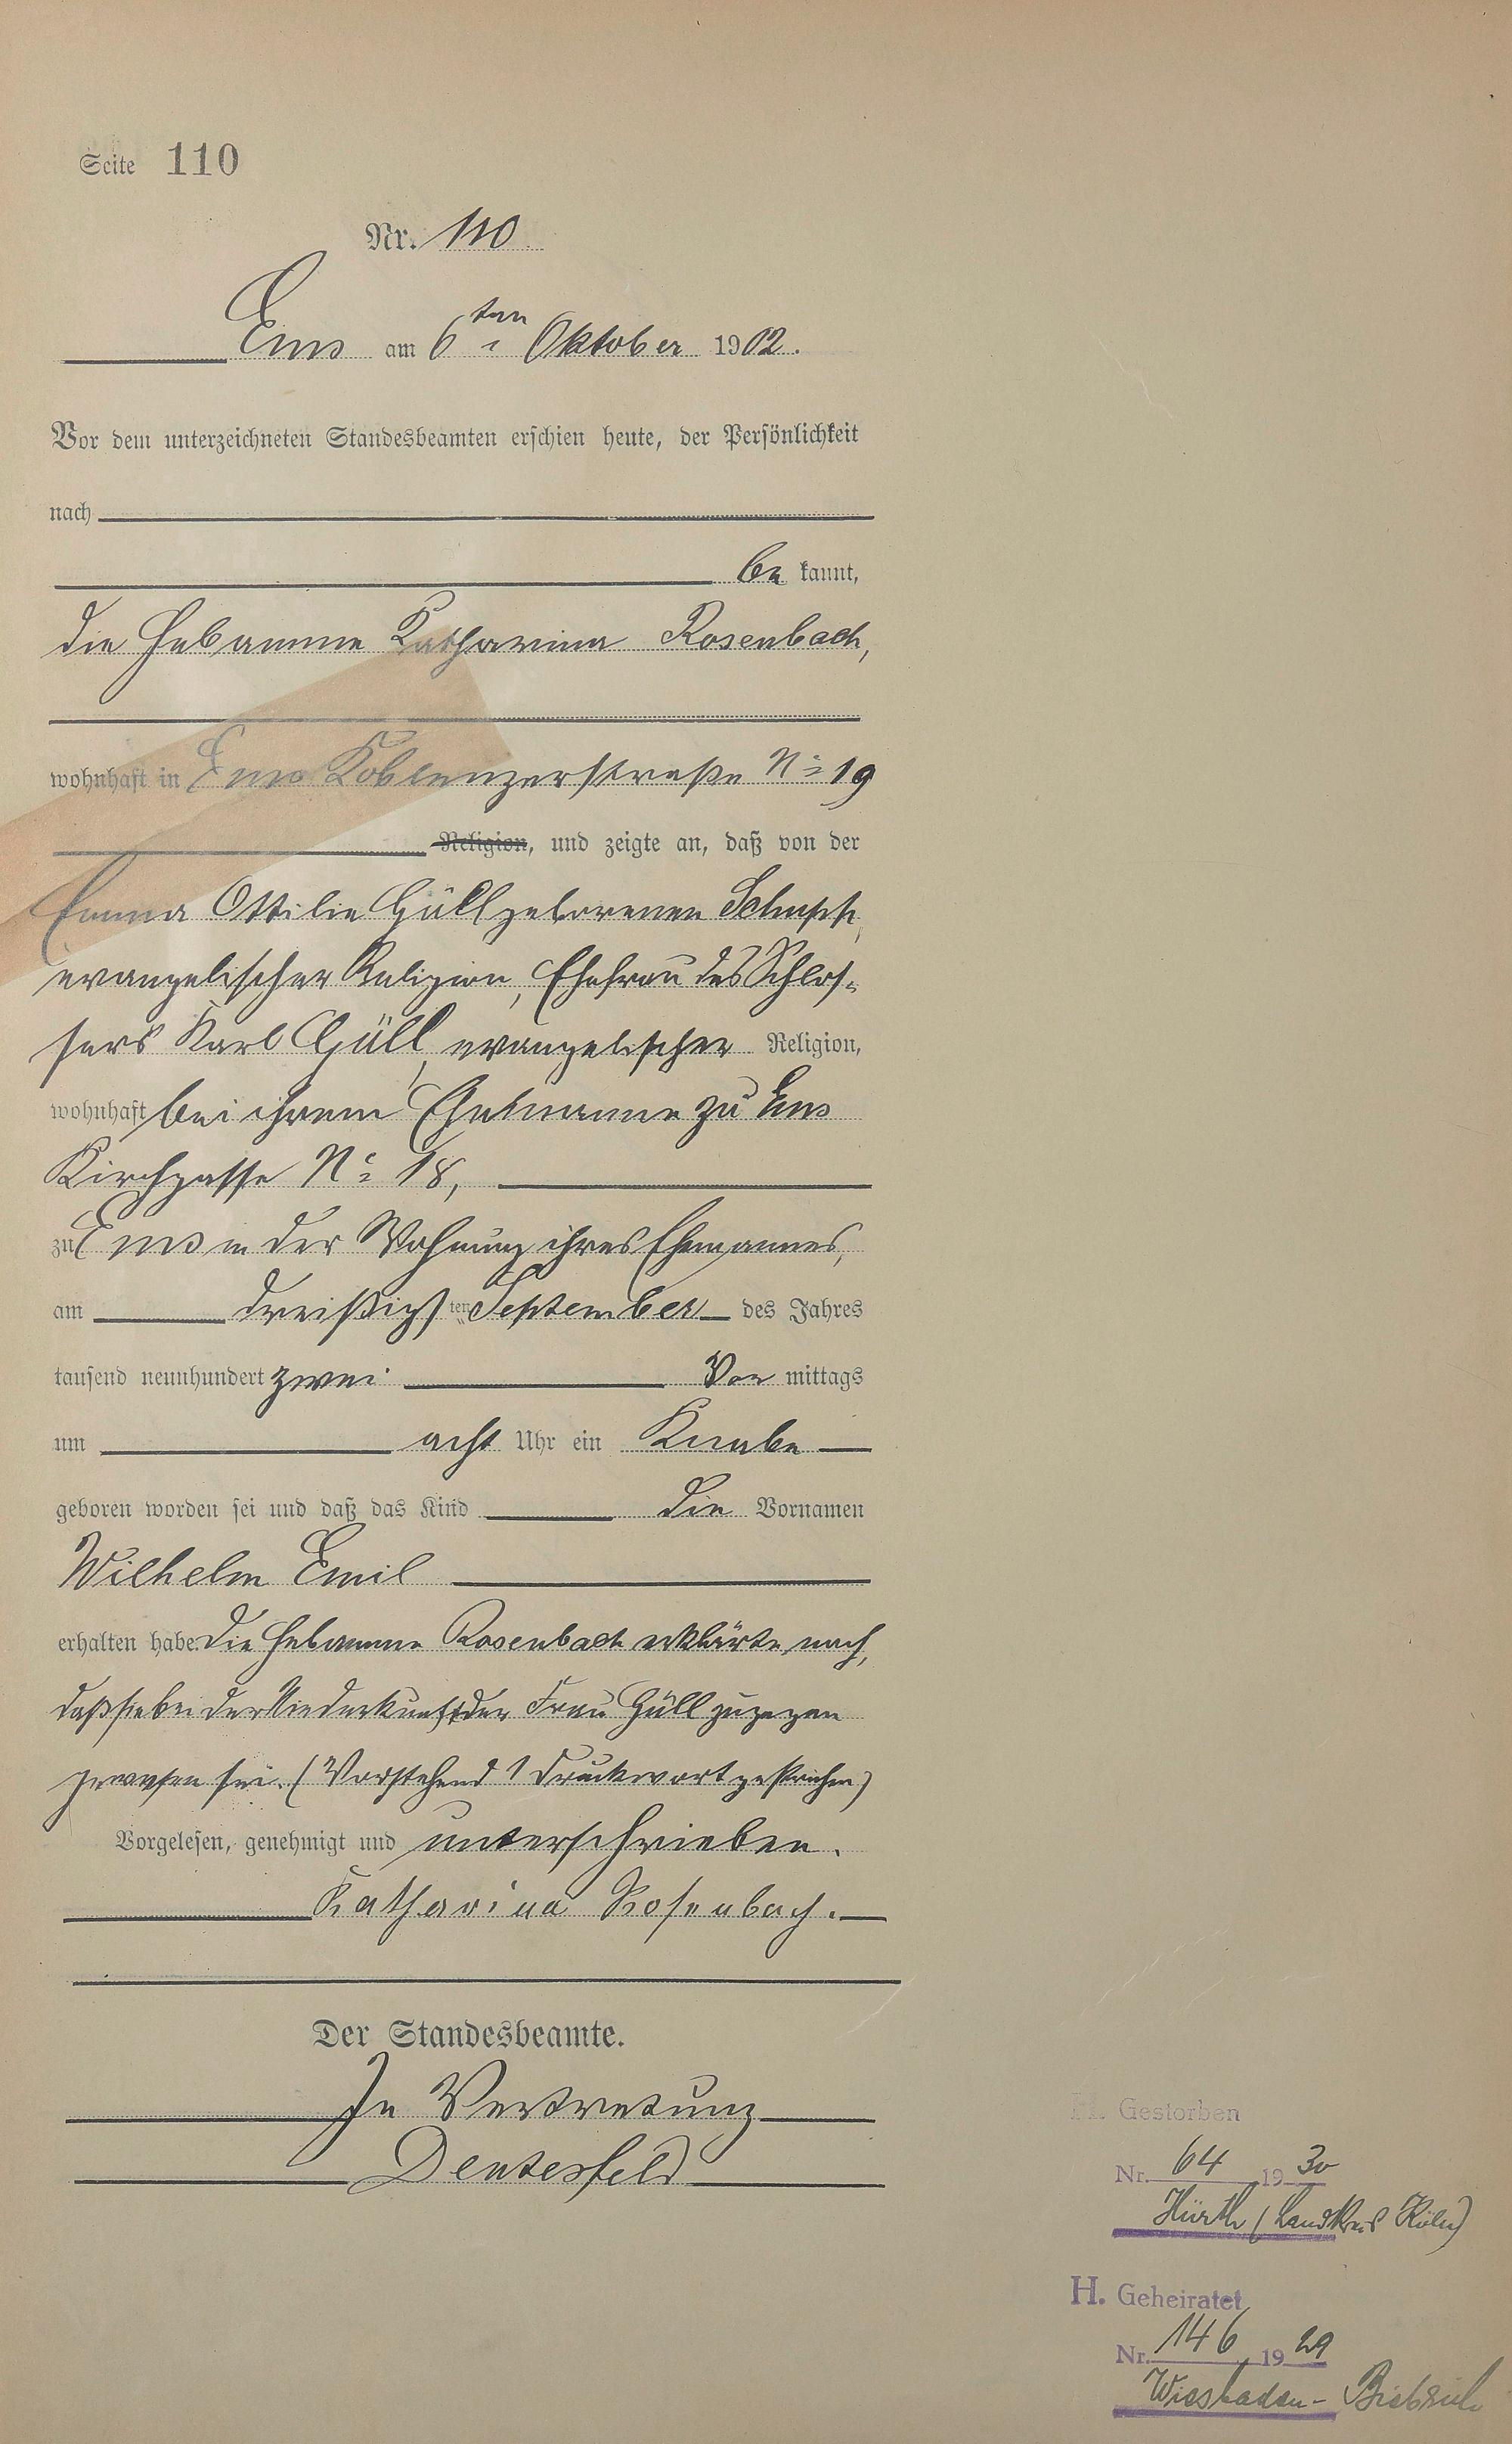 Seite 110
Nr. 110.
Ems am 6ten Oktober 1902.
Vor dem unterzeichneten Standesbeamten erschien heute, der Persönlichkeit
nach
be kannt,
die Hebamme Katharina Rosenbach,
wohnhaft in Ems Koblenzerstraße No 19
Religion, und zeigte an, daß von der
Emma Ottilie Güll geborenen Schupp,
evangelischer Religion, Ehefrau des Schlos-
sers Karl Güll, evangelischer Religion,
wohnhaft bei ihrem Ehemanne zu Ems
Kirchgasse No 18,
zu Ems in der Wohnung ihres Ehemannes,
am dreißigsten September des Jahres
tausend neunhundert zwei Vor mittags
um acht Uhr ein Knabe
geboren worden sei und daß das Kind die Vornamen
Wilhelm Emil
erhalten habe. Die Hebamme Rosenbach erklärte noch,
daß sie bei der Niederkunft der Frau Güll zugegen
gewesen sei. (Vorstehend 1 Druckwort gestrichen)
Vorgelesen, genehmigt und unterschrieben.
Katharina Rosenbach.
Der Standesbeamte.
In Vertretung
H. Gestorben
Nr. 64 1930
Hürth (Landkreis Köln)
H. Geheiratet
Nr. 146 1929
Wiesbaden-Biebrich